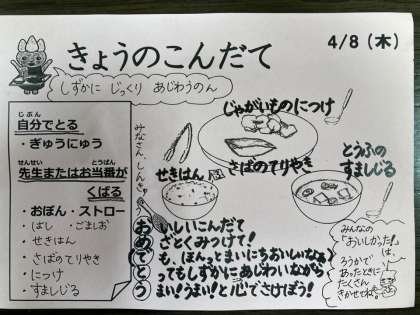 きょうのこんだて
4/8(木)
しずかに じっくり あじわうのん
じぶん
自分でとる
・ぎゅうにゅう
せんせい とうばん
先生またはお当番が
くばる
・おぼん・ストロー
・はし ・ごましお
・せきはん
・さばのてりやき
・につけ
・すましじる
みなさん、しんきゅう
おめでとう
じゃがいものにつけ
さばのてりやき
せきはん
とうふの
すましじる
いしいこんだて
ざとくみつけて!
も、ほんっとまいにちおいしいな
ってもしずかにあじわいながら
まい!うまい!と心でさけぼう!
みんなの
「おいしかった!」
は、
ろうかで
あったときに
たくさん
きかせてね